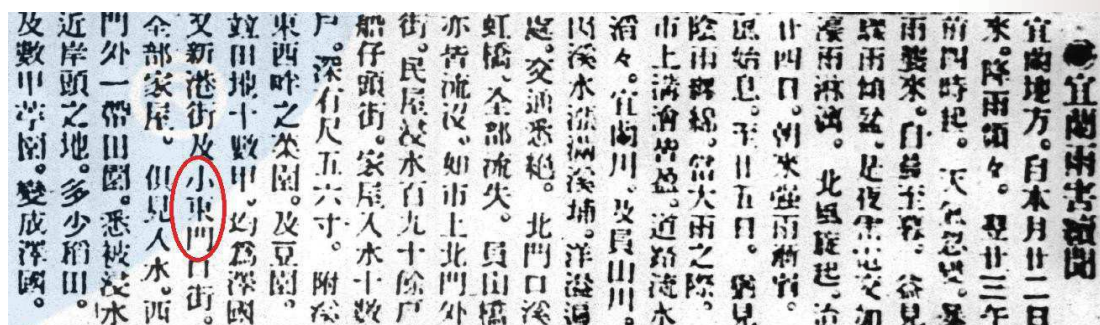 ●宜蘭雨害續聞
宜蘭地方。自本月廿二日
來。降雨頻々。翌廿三午
前四時起。天氣忽變。暴
雨襲來。自晨至暮。益見
驟雨傾盆。是夜雷電交加
濠雨淋漓。北風旋起。
廿四日。朝來強雨漸弱。
風始息。至廿五日。猶見
陰雨霖綿。當大雨之際。
市上溝澮皆盈。道路流水
滔々。宜蘭川。及員山川。
因溪水漲滿溪埔。洋溢過
庭。交通悉絕。北門口溪
虹橋。全部流失。員山橋
亦皆流沒。如市上北門外
街。民屋浸水百九十餘戶
船仔頭街。家屋入水十數
戶。深有尺五六寸。附溪
東西畔之菜園。及豆園。
並田地十數甲。均爲澤國
又新港街及小東門口街。
全部家屋。俱見入水。西
門外一帶田園。悉被浸水
近岸頭之地。多少稻田。
及數甲芋園。變成澤國。